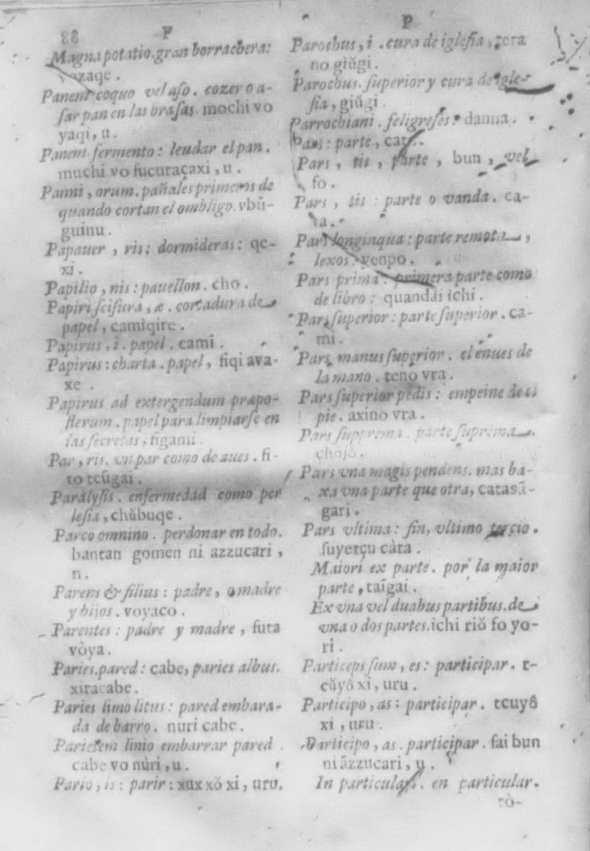 88 P
Magna potatio. gran borrachera:
vozaqe.
Panem coquo vel aſo. cozer o a-
ſar pan en las braſas. mochi vo
yaqi, u.
Panem fermento: leudar el pan.
muchi vo fucuraçaxi, u.
Panni, orum. pañales primeros de
quando cortan el ombligo. vbŭ-
guinu.
Papauer, ris: dormideras: qe-
xi.
Papilio, nis: pauellon. cho.
Papiri ſciſura, æ. cortadura de
papel, camiqire.
Papirus. i. papel. cami.
Papirus: charta. papel, fiqi ava-
xe.
Papirus ad extergendum præpo-
ſterum. papel para limpiarſe en
las ſecretas, figami.
Par, ris. vn par como de aues. fi-
to tcŭgai.
Paralyſis. enfermedad como per
leſia, chŭbuqe.
Parco omnino. perdonar en todo.
bantan gomen ni azzucari,
n.
Parens & filius: padre, o madre
y hijos. voyaco.
Parentes: padre y madre, futa
vòya.
Paries. pared: cabe, paries albus.
xiracabe.
Paries limo litus: pared embara-
da de barro. nuri cabe.
Parietem linio embarrar pared.
cabe vo nùri, u.
Pario, is: parir: xux xŏ xi, uru.
P
Parochus, i. cura de igleſia, tera
no giŭgi.
Parochus. ſuperior y cura de igle-
ſia, giŭgi.
Parrochiani. feligreſes: danna.
Pars: parte, cat.
Pars, tis, parte, bun, vel
fo.
Pars, tis: parte o vanda. ca-
ta.
Pars longinqua: parte remota,
lexos: yenpo.
Pars prima: primera parte como
de libro: quandai ichi.
Pars ſuperior: parte ſuperior. ca-
mi.
Pars manus ſuperior. el enues de
la mano. teno vra.
Pars ſuperior pedis: empeine de el
pie. axino vra.
Pars ſupprema. parte ſuprema.
Pars vna magis pendens. mas ba-
xa vna parte que otra, catasã-
gari.
Pars vltima: fin, vltimo tercio.
ſuyerçu càta.
Maiori ex parte. por la maior
parte, taĩgai.
Ex vna vel duabus partibus. de
vna o dos partes. ichi riŏ fo yo-
ri.
Particeps ſum, es: participar. t-
cŭyŏ xi, uru.
Participo, as: participar. tcuyŏ
xi, uru.
Participo, as. participar. fai bun
ni ãzzucari, u.
In particulari. en particular.
tò-